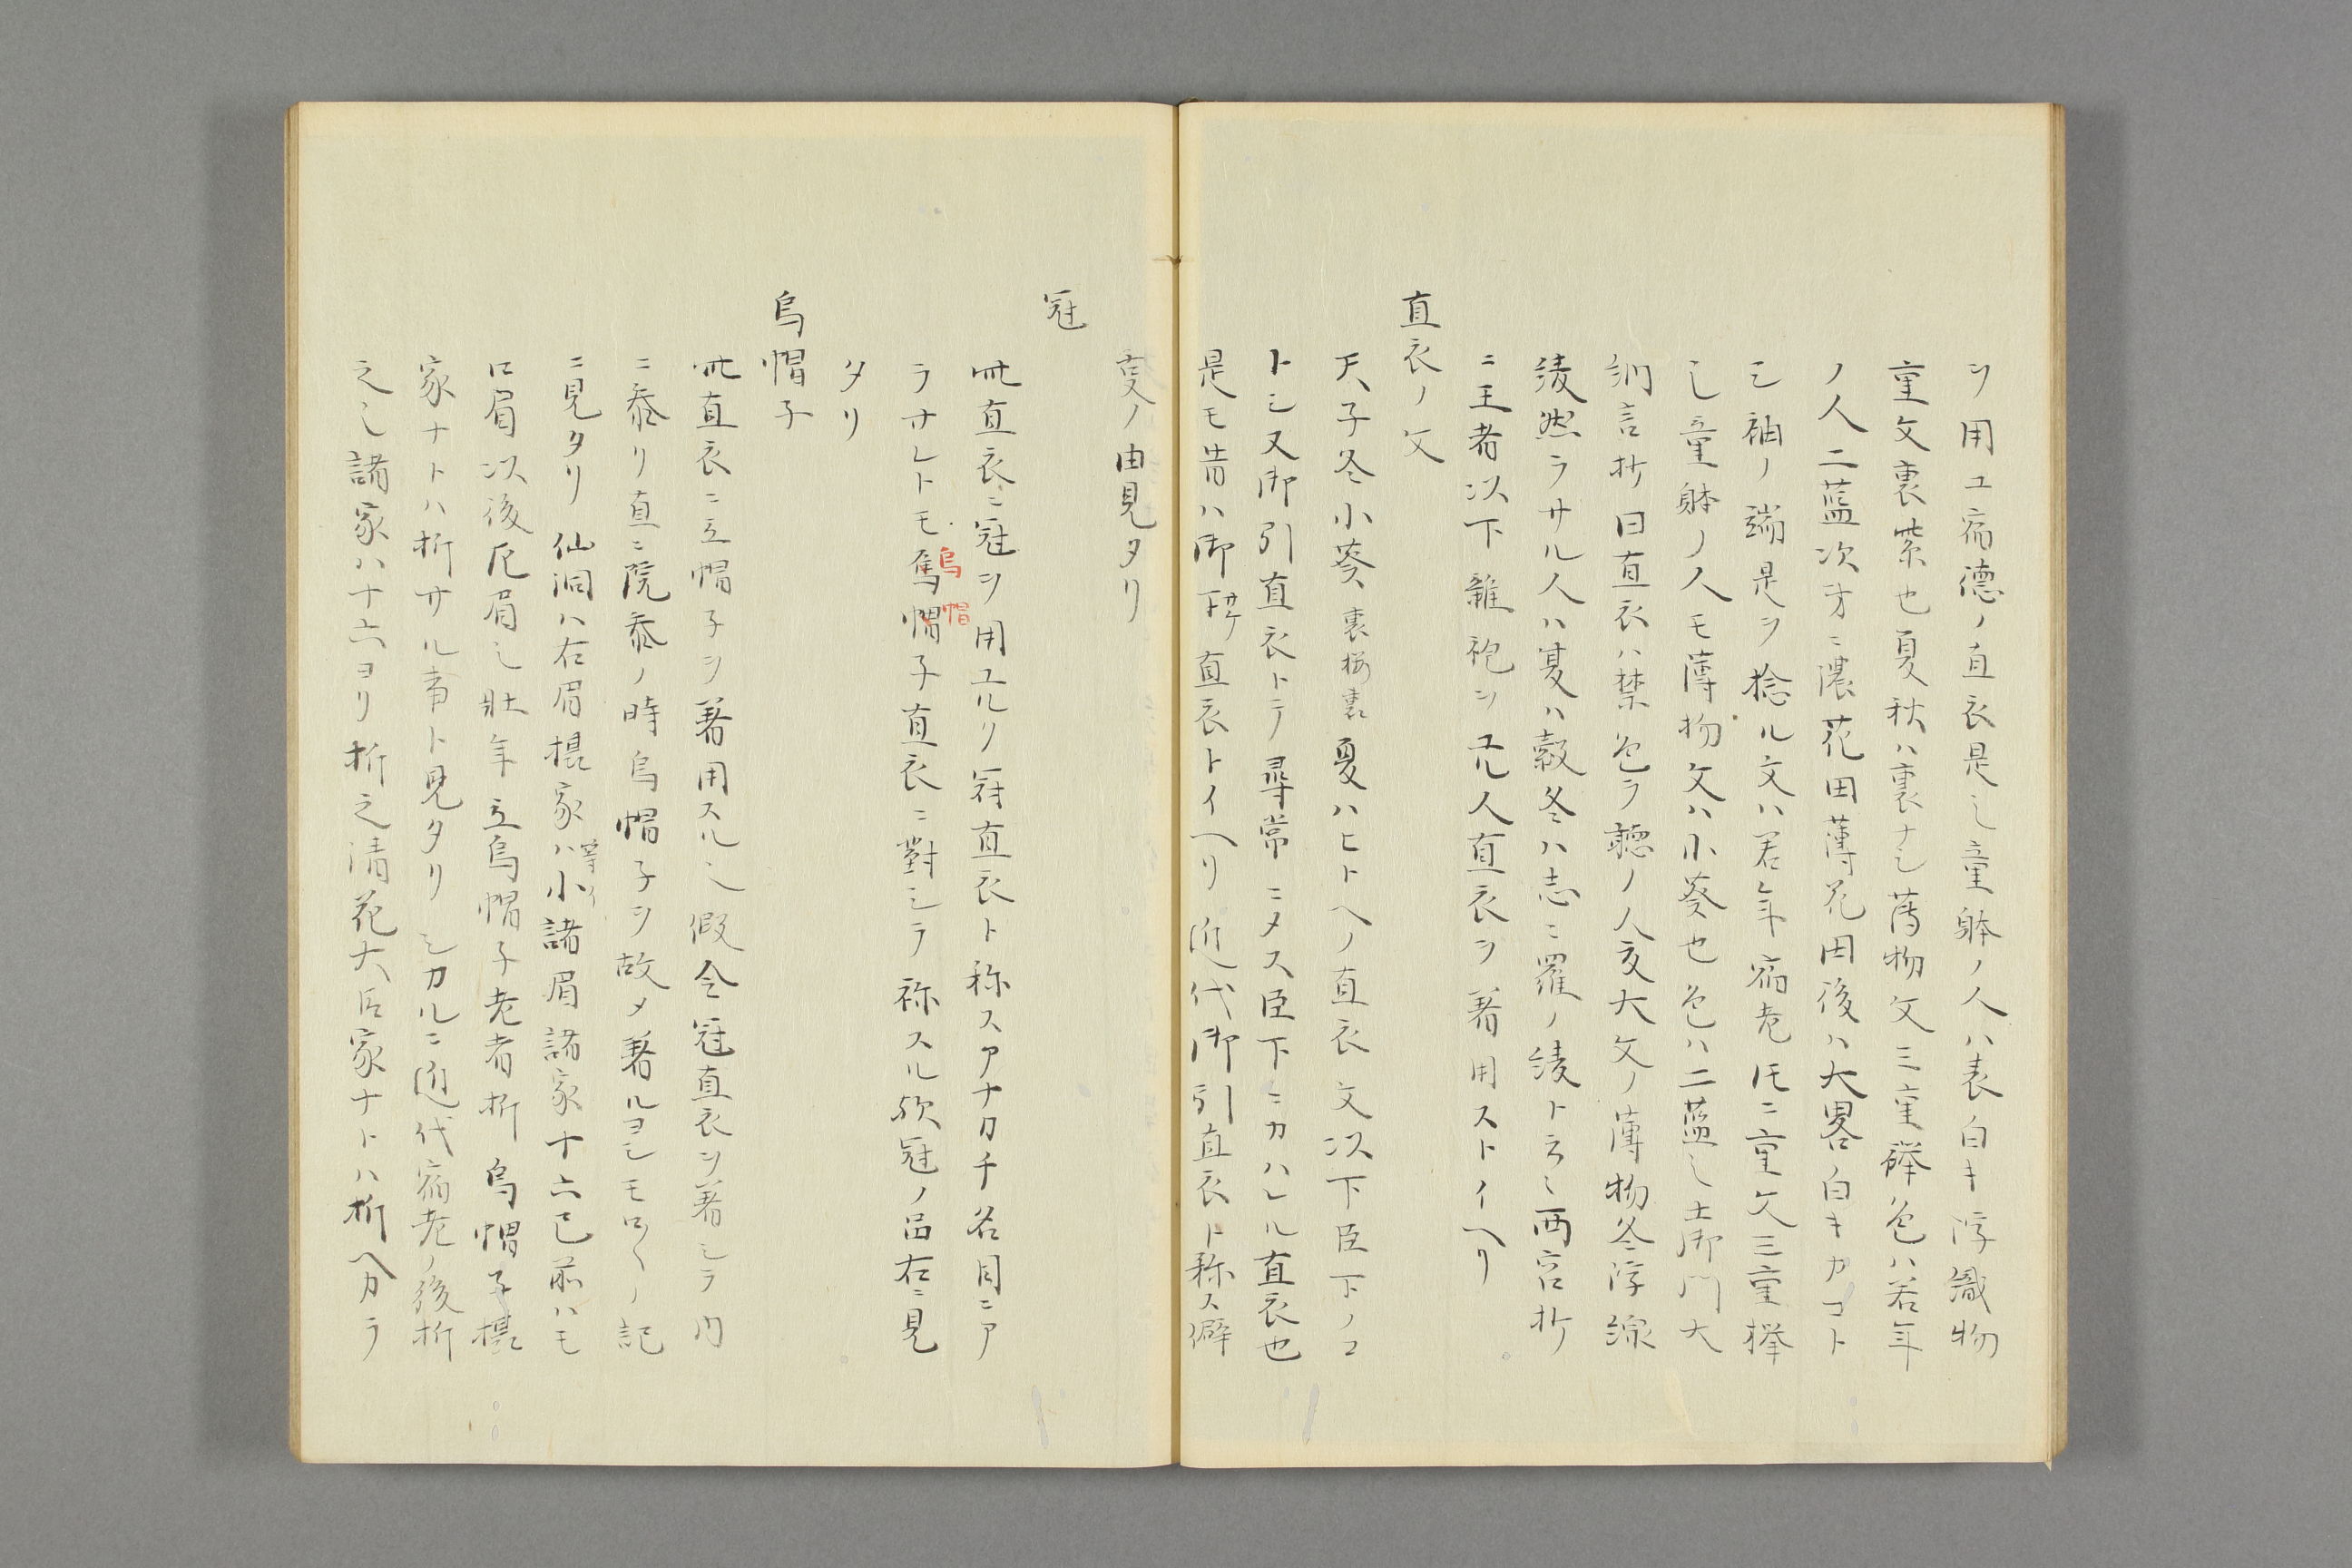 ヲ用ユ宿德ノ直衣是也童躰ノ人ハ表白キ浮織物
重文裏紫也夏秋ハ裏ナシ薄物文三重襷色ハ若年
ノ人二藍次才ニ濃花田薄花田後ハ大畧白キカコト
シ袖ノ端是ヲ捻ル文ハ若年宿老トモニ重文三重襷
也童躰ノ人モ薄物文ハ小葵也色ハ二藍也土御門大
納言抄曰直衣ハ禁色ヲ聽ノ人夏大文ノ薄物冬浮線
綾然ラサル人ハ夏ハ縠冬ハ志ニ羅ノ綾ト云々西宮抄
ニ王者以下雜袍ヲ凡人直衣ヲ著用ストイヘリ
直衣ノ文
天子冬小葵裏
夏ハヒトヘノ直衣文以下臣下ノコ
トシ又御引直衣トテ尋常ニメス臣下ニカハレル直衣也
是モ昔ハ御
直衣トイヘリ近代御引直衣ト称ス僻
事ノ由見タリ
冠
此直衣ニ冠ヲ用ユルリ冠直衣ト称スアナカチ名目ニア
ラサレトモ烏帽子直衣ニ對シテ称スル欤冠ノ品右ニ見
烏
帽
タリ
烏帽子
此直衣ニ立帽子ヲ著用スル也假令冠直衣ヲ著シテ内
ニ参リ直ニ院参ノ時烏帽子ヲ故メ著ルヨシモロ〱ノ記
ニ見タリ仙洞ハ右眉摂家ハ小諸眉諸家十六已前ハモ
ロ眉以後厄眉也壮年立烏帽子老者折烏帽子摂
家ナトハ折サル事ト見タリシカルニ近代宿老ノ後折
之也諸家ハ十六ヨリ折之清花大臣家ナトハ折ヘカラ